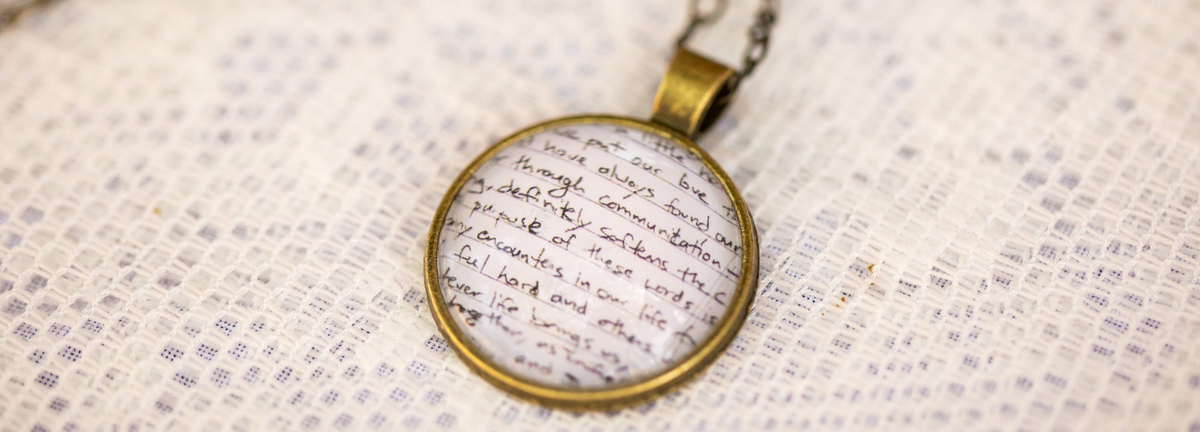 a little
put our love
have always found our
through communication
definitely softens the
purpose of these words is
encounters in our life
ful hard and others
ever life brings us
together, as
and